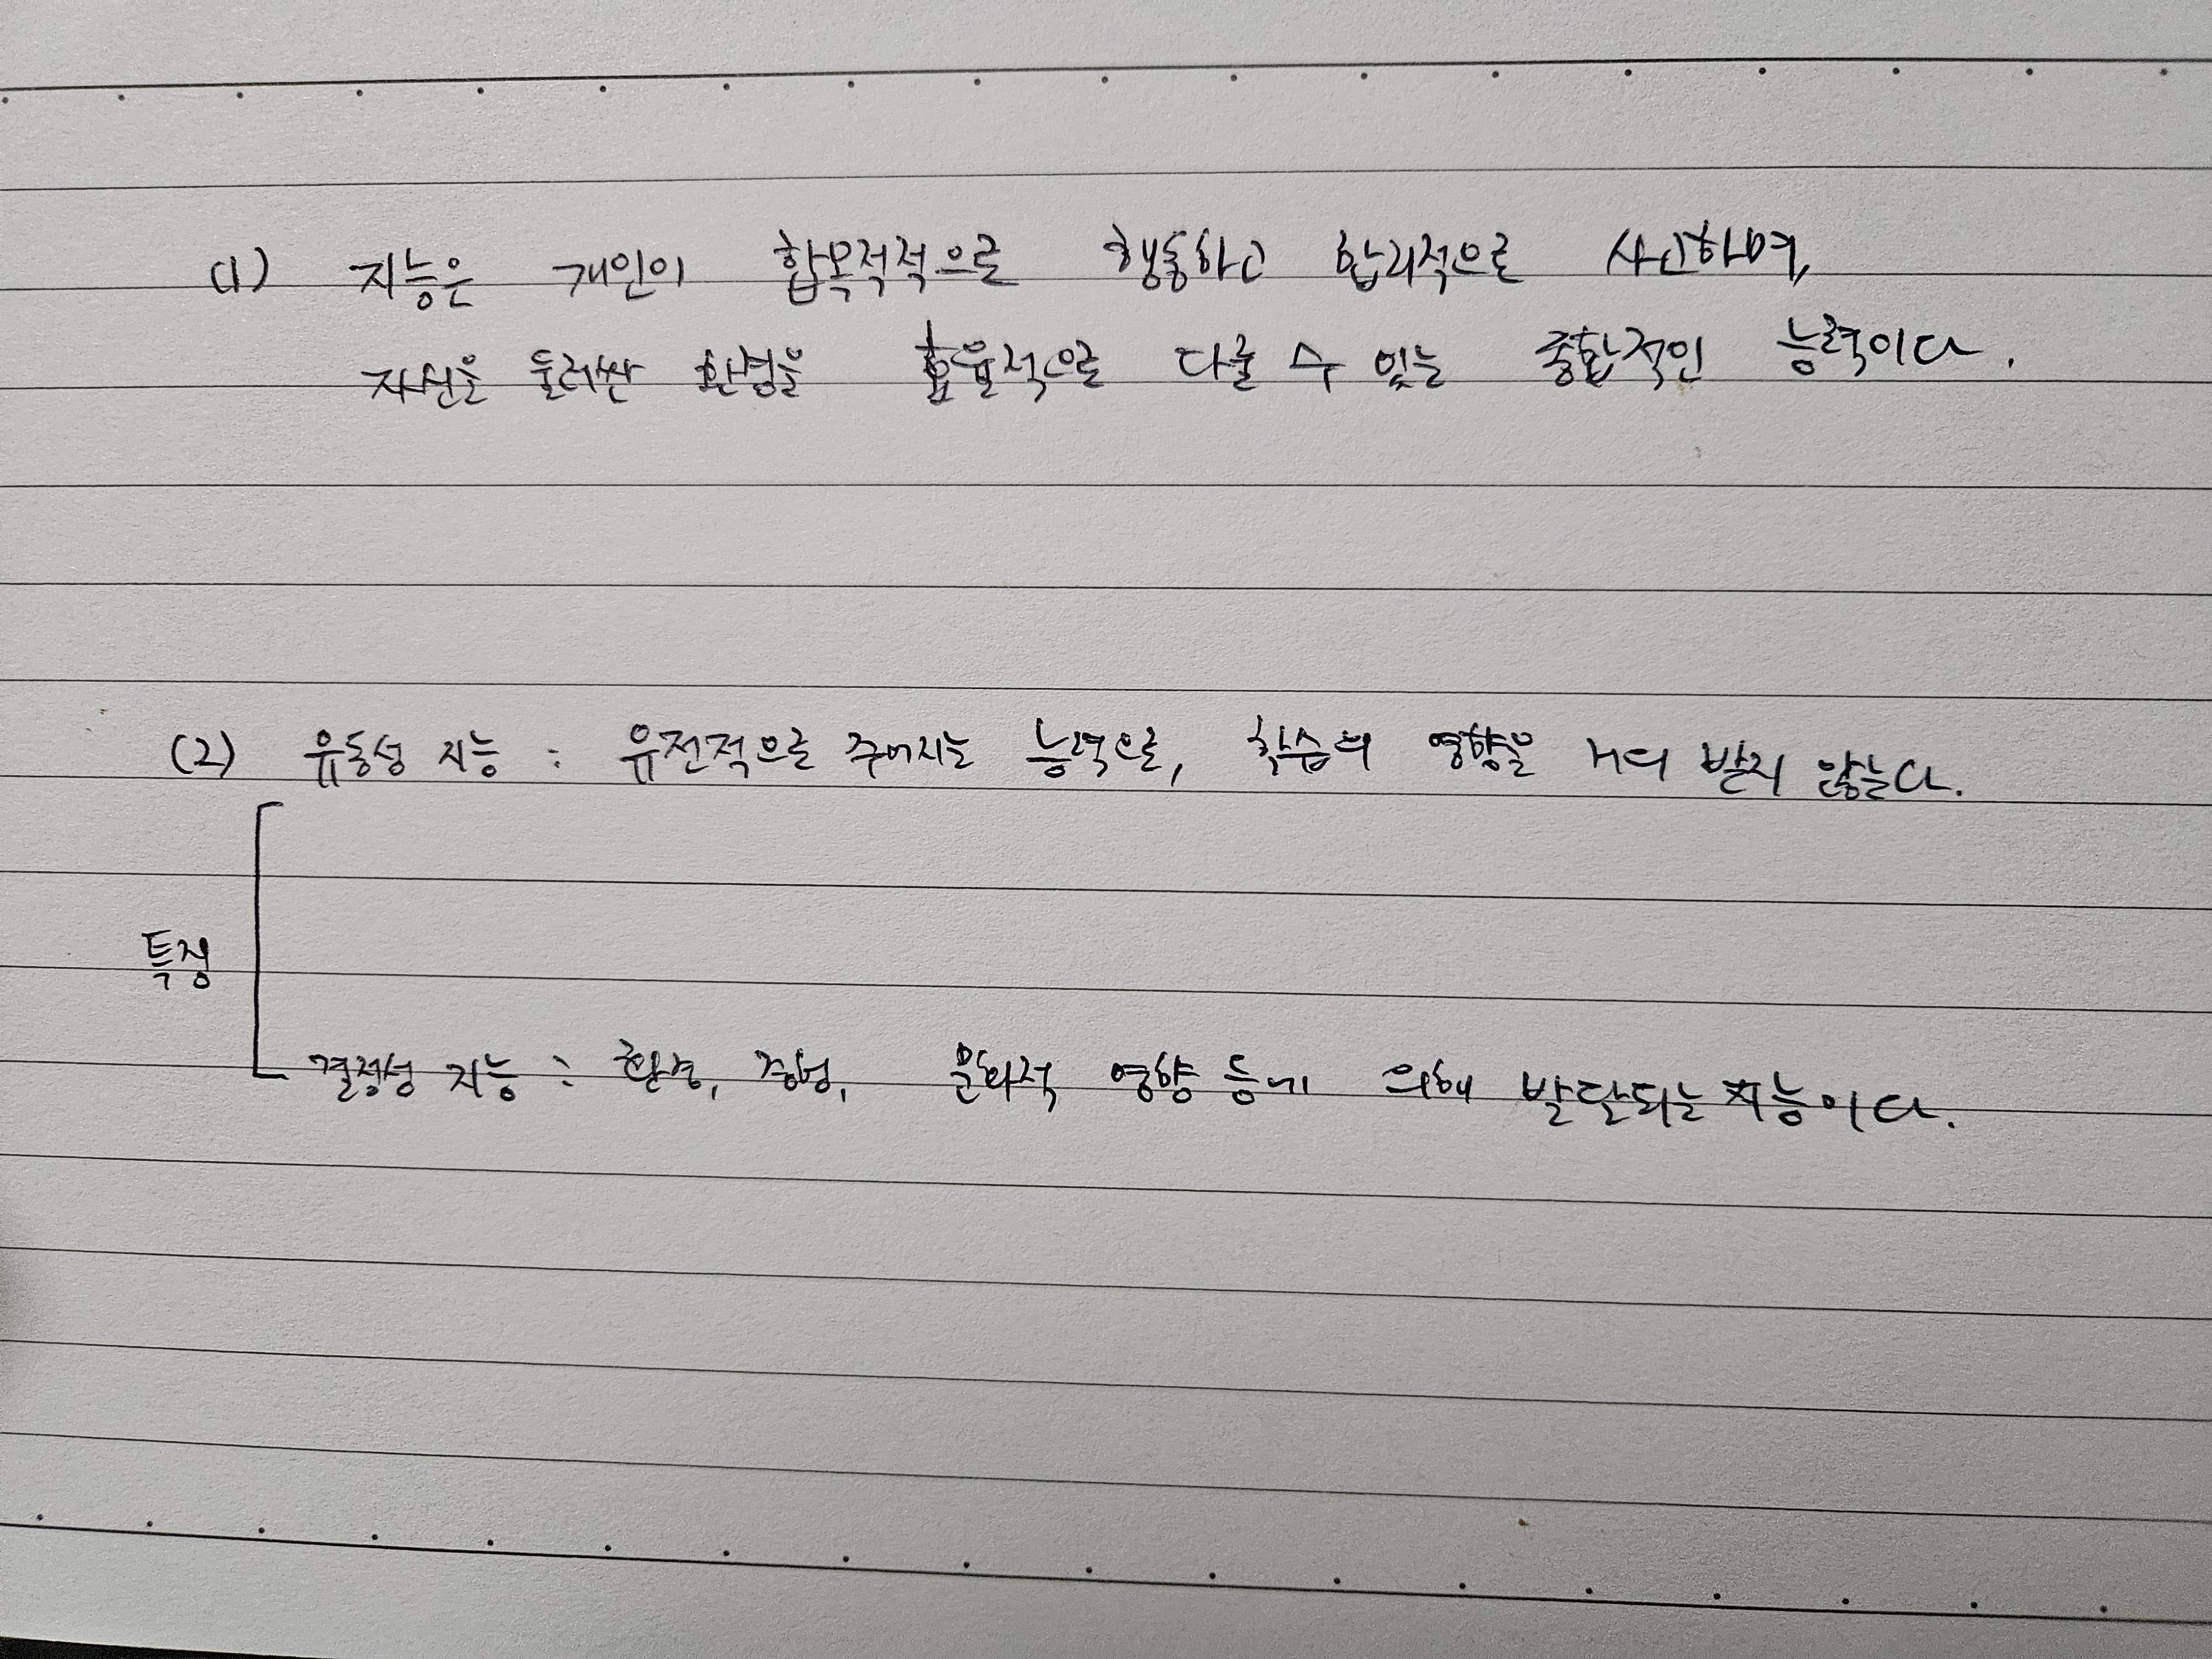 (1) 지능은 개인이 합목적적으로 행동하고 합리적으로 사고하며,
자신을 둘러싼 환경을 효율적으로 다룰 수 있는 종합적인 능력이다.
(2) 유동성 지능 : 유전적으로 주어지는 능력으로, 학습의 영향을 거의 받지 않는다.
특징
결정성 지능 : 환경, 경험, 문화적 영향 등에 의해 발달되는 지능이다.